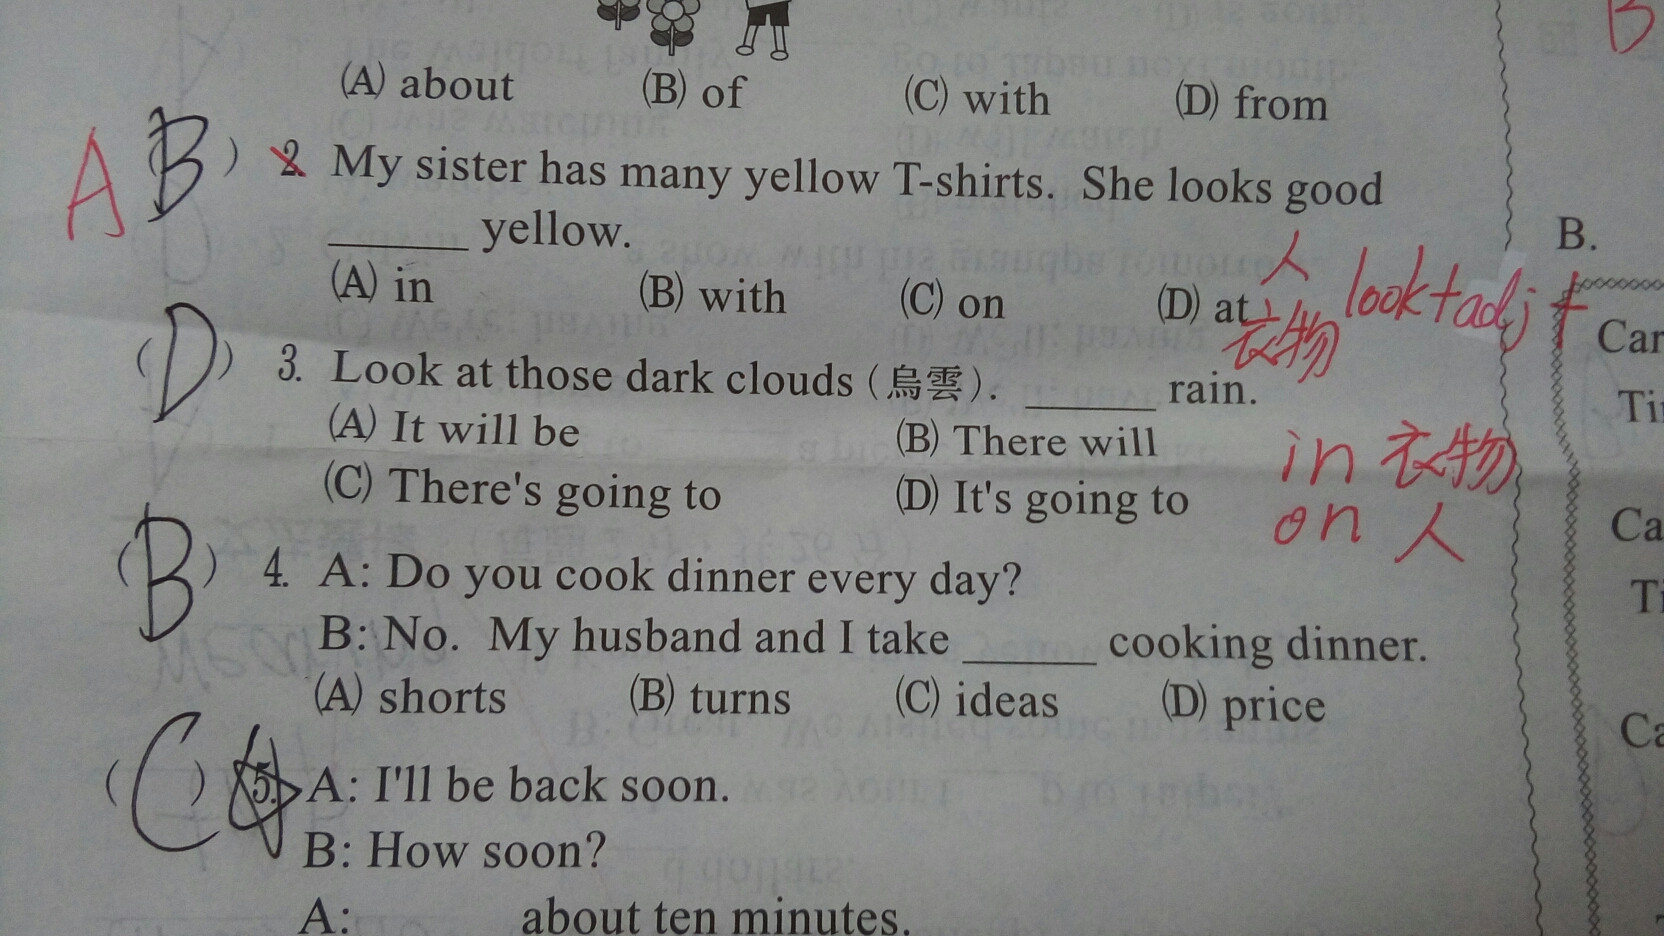 (A) about (B) of (C) with (D) from
A (B) 2. My sister has many yellow T-shirts. She looks good
______ yellow.
(A) in (B) with (C) on (D) at
人
衣物 look+adj+
(D) 3. Look at those dark clouds (烏雲). ______ rain.
(A) It will be (B) There will
(C) There's going to (D) It's going to
in 衣物
on 人
(B) 4. A: Do you cook dinner every day?
B: No. My husband and I take ______ cooking dinner.
(A) shorts (B) turns (C) ideas (D) price
(C) 5. A: I'll be back soon.
B: How soon?
A: ______ about ten minutes.
B
B.
Car
Ca
Ca